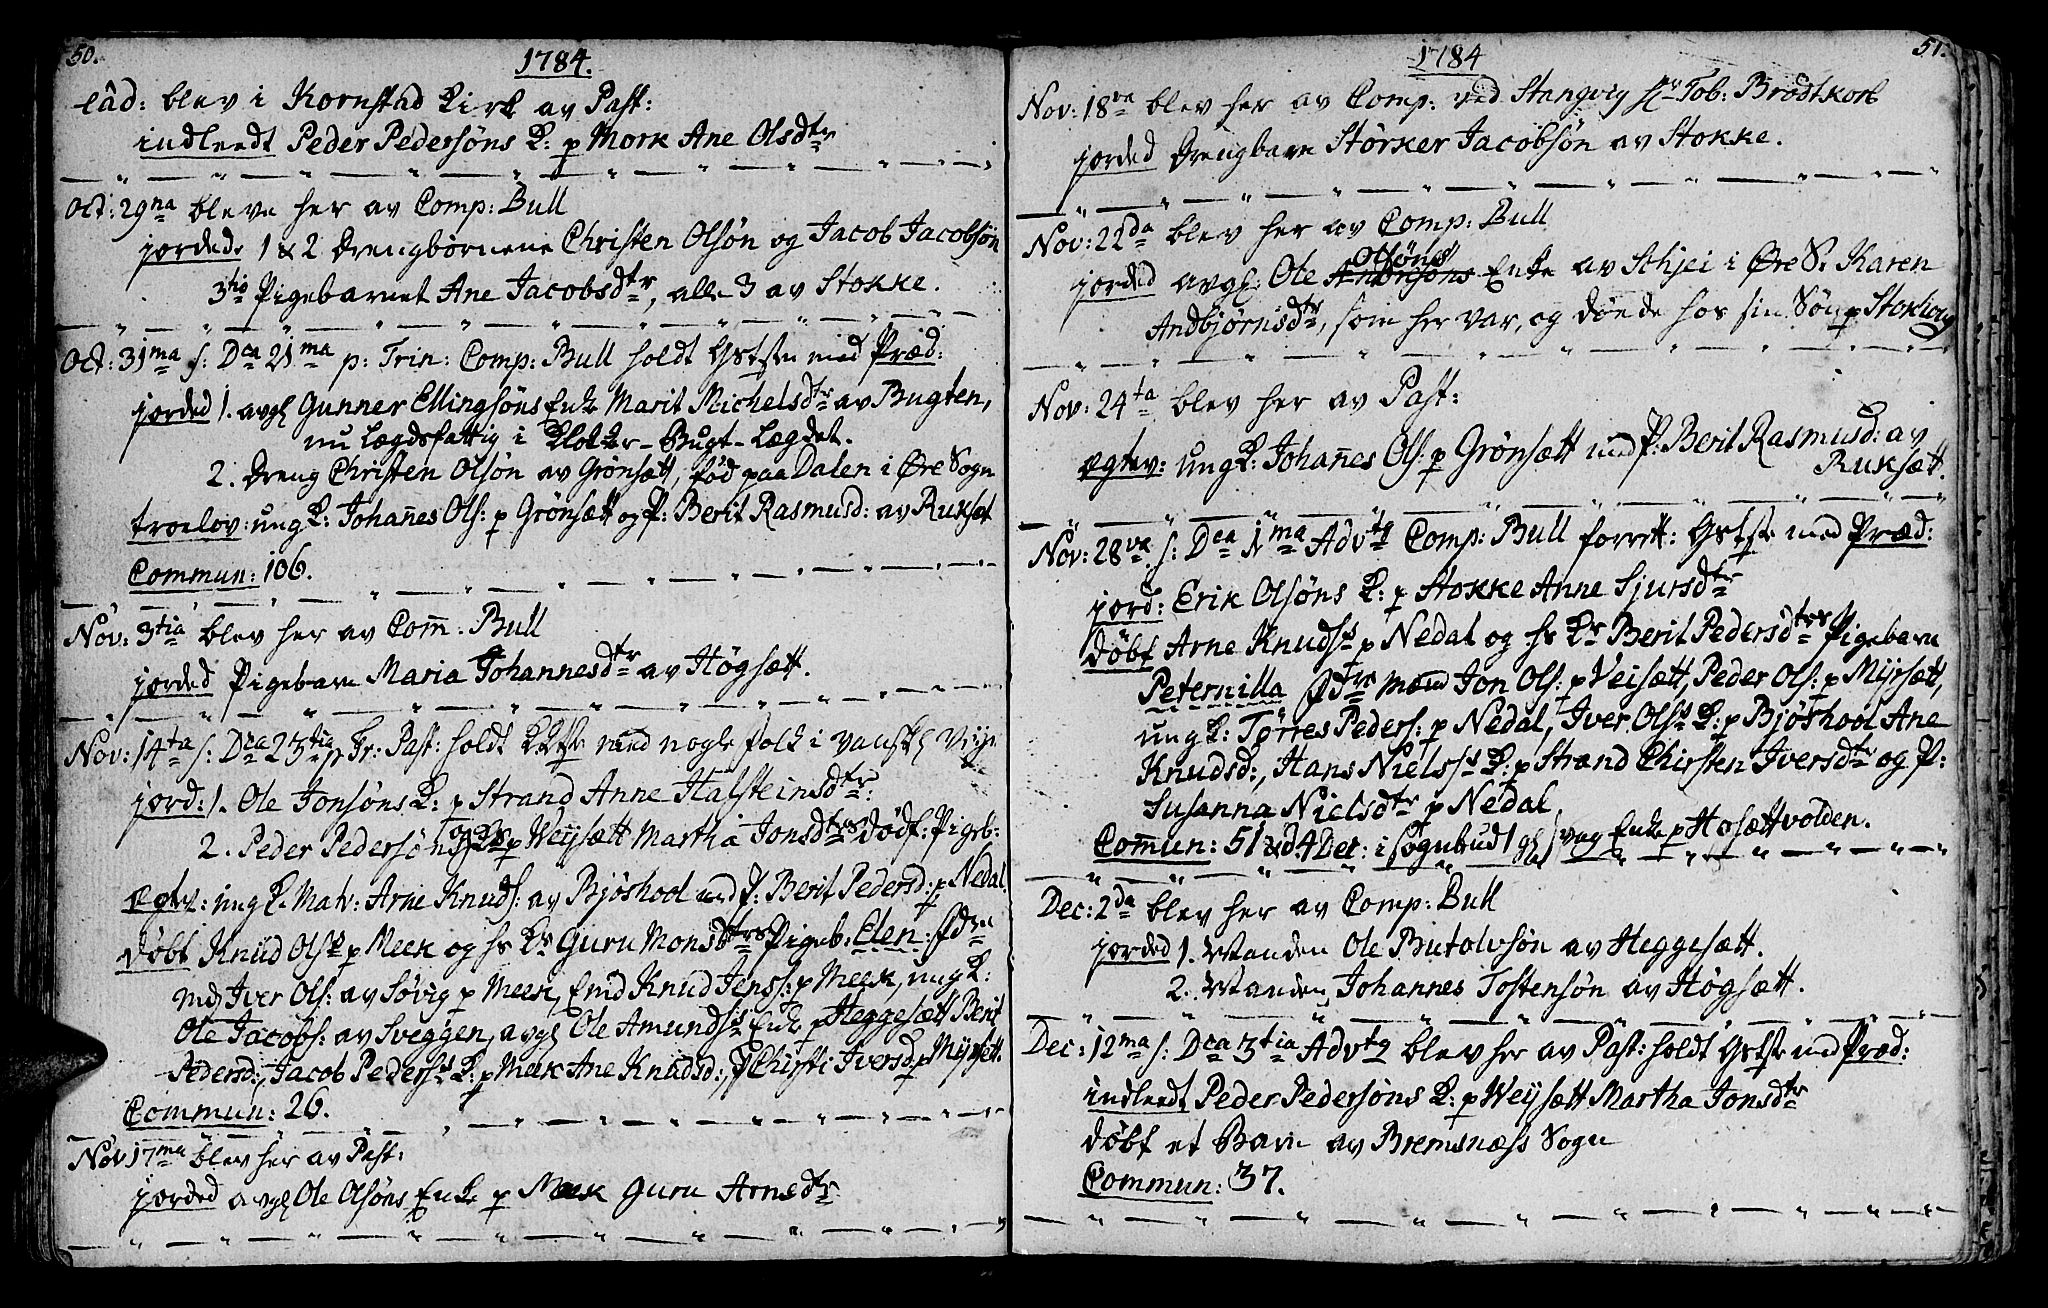 50.
1784.
eâd: blev i Kornstad Kirk av Past:
indleedt Peder Pedersöns K: p Mork Ane Olsdtr
Oct: 29na bleve her av Comp: Bull
jorded. 1 & 2 Drengbörnene Christen Olsön og Jacob Jacobsön
3tio Pigebarnet Ane Jacobsdtr, alle 3 av Stokke.
Oct: 31ma s: Dca 21ma p: Trin: Comp: Bull holdt Gstste med Præd:
jorded 1. avgl Gunner Ellingsöns Enke Marit Michelsdtr av Bugten,
nu Lægdsfattig i Klokker-Bugt-Lægdet.
2. Dreng Christen Olsön av Grönsætt, föd paa Dalen i Öre Sogn
troelov: ung K: Johañes Ols: p Grönsætt og P: Berit Rasmusd: av Ruksæt
Commun: 106.
Nov: 3tia blev her av Com̄: Bull
jorded Pigebarn Maria Johannesdtr av Högsætt.
Nov: 14ta s: Dca 23tia p Tr: Past: holdt med nogle folk i vanskl
jord: 1. Ole Jonsöns K: p Strand Anne Halsteinsdtr:
2. Peder Pedersön og Ks p Weysætt Martha Jonsdtrs dödf: Pigeb:
egtv: ung K. Matr: Arne Knuds: av Bjöshool med P. Berit Pedersd: p Nedal.
döbt Knud Olss p Meek og hs Ks Guru Monsdtrs Pigeb: Elen:
md Iver Ols: av Sövig p Meek, Enid Knud Jenss: p Meek, ung K:
Ole Jacobs: av Sveggen, avgl Ole Amundss Enke p Heggesætt Berit
Pedersd:, Jacob Peders K: p Meek Ane Knudsd:, P Chirsti Iversd p Myrsætt.
Commun: 26.
Nov 17ma blev her av Past:
jorded avgl Ole Olsöns Enke p Meek Guru Arnsdtr
51.
1784
Nov: 18va blev her av Comp: ved Stangvig Hr Tob: Brodtkorb
jorded Drengbarn Störker Jacobsön av Stokke.
Nov: 22da blev her av Comp: Bull
Olsöns
jorded avgl: Ole Enke av Schjei i Öre S: Karen
Andbjörnsdtr, som her var, og döede hos sin Sön p Stokhoug
Nov: 24ta blev her av Past:
egtev: ung K: Johañes Ols: p Grönsætt med P: Berit Rasmusd: av
Ruksætt.
Nov: 28va s: Dca 1ma Advtq Comp: Bull forrett: Gstste med Præd:
jord: Erik Olsöns K: p Stokke Anne Sjursdtr
döbt Arne Knudss p Nedal og hs Ks Berit Pedersdtrs Pigebarn
Peternilla Jon Ols: p Veisætt, Peder Ols: p Myrsætt,
ung K: Törres Peders: p Nedal, Iver Olss K: p Bjöshool Ane
Knudsd:, Hans Nielss K: p Strand Chirsten Iversdtr og P:
Susanna Nielsdtr p Nedal
Com̄un: 51 & d. 4 Dec: i Sognebud 1 gl svag Enke p Hosættvolden.
Dec: 2da blev her av Comp: Bull
jorded 1. Manden Ole Butolvsön av Heggesætt.
2. Manden Johannes Tostensön av Högsætt.
Dec: 12ma s: Dca 3tia Advtq blev her av Past: holdt Gstste med Præd:
indleedt Peder Pedersöns K: p Weysætt Martha Jonsdtr
döbt et Barn av Bremsnæss Sogn
Commun: 37.